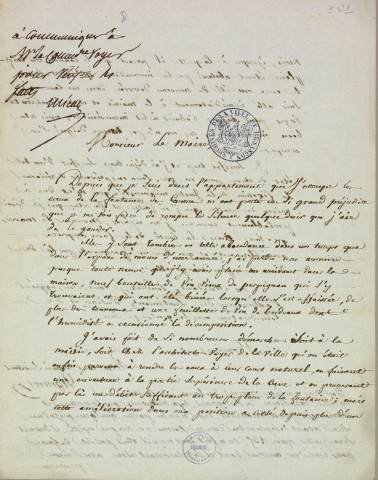 à communiquer à
Mr le Comm. re Voyer
pour vérifier les
faits
Micaud
D
3 N 1
Monsieur le Maire
Depuis que je suis dans l'appartement que j'occupe les
eaux de la fontaine de m'ont porté un si grand préjudice
que je me vois forcé de rompre le silence quelque désir que j'aie
de le garder.
elle y sont tombées en telle abondance dans un temps que
dans l'espace de moins de mon armoire
presque toute neuve que j'y avais placé en arrivant dans la
maison, neuf bouteilles de vin vieux de perpignan qui s'y
trouvaient et qui ont été brisées lorsqu'elle s'est affaissée, de
plus des tonneaux et une feuillette de vin de bordeaux dont
l'humidité a occasionné la décomposition.
J'avais fait de si nombreuses démarches soit à la
mairie, soit chez l'architecte Voyer de la Ville qu'on était
enfin parvenu à rendre les eaux à leur cours naturel, en faisant
une ouverture à la partie supérieure de la Cuve et en procurant
par là un débit suffisant au trop plein de la fontaine; mais
cette amélioration dans ma position a cessé depuis plus d'un